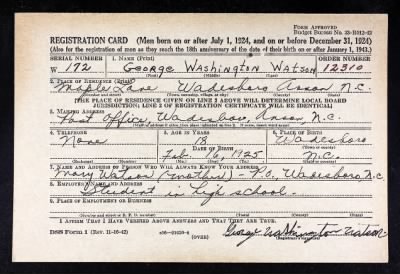 FORM APPROVED
Budget Bureau No. 33-R012-42
REGISTRATION CARD (Men born on or after July 1, 1924, and on or before December 31, 1924)
(Also for the registration of men as they reach the 18th anniversary of the date of their birth on or after January 1, 1943.)
SERIAL NUMBER 1. NAME (Print) ORDER NUMBER
W 172 George Washington Watson 12300
(First) (Middle) (Last)
2. PLACE OF RESIDENCE (Print)
Maple Lane Wadesboro Anson N.C.
(Number and street) (Town, township, village, or city) (County) (State)
[THE PLACE OF RESIDENCE GIVEN ON LINE 2 ABOVE WILL DETERMINE LOCAL BOARD
JURISDICTION; LINE 2 OF REGISTRATION CERTIFICATE WILL BE IDENTICAL]
3. MAILING ADDRESS
Post Office, Wadesboro, Anson, N.C.
4. TELEPHONE 5. AGE IN YEARS 6. PLACE OF BIRTH
None 18 Wadesboro
DATE OF BIRTH
Feb. 16, 1925 N.C.
7. NAME AND ADDRESS OF PERSON WHO WILL ALWAYS KNOW YOUR ADDRESS
Mary Watson (mother) - P.O. Wadesboro N.C.
8. EMPLOYER'S NAME AND ADDRESS
Student in high school.
9. PLACE OF EMPLOYMENT OR BUSINESS
I AFFIRM THAT I HAVE VERIFIED ABOVE ANSWERS AND THAT THEY ARE TRUE.
DSS Form 1 (Rev. 11-16-42) (OVER) George Washington Watson
(Registrant's signature)